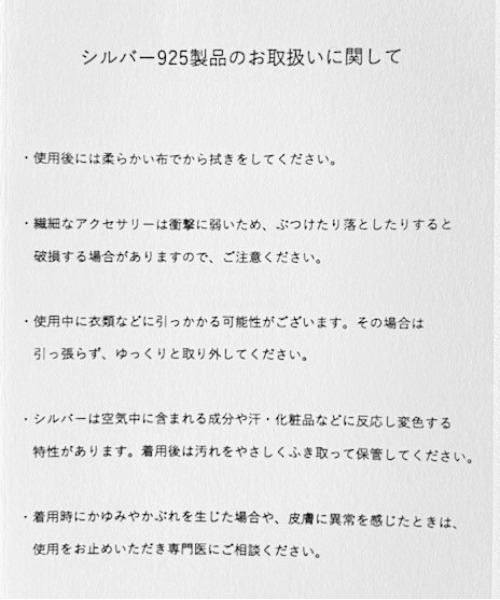 シルバー925製品のお取扱いに関して
・使用後には柔らかい布でから拭きをしてください。
・繊細なアクセサリーは衝撃に弱いため、ぶつけたり落としたりすると
破損する場合がありますので、ご注意ください。
・使用中に衣類などに引っかかる可能性がございます。その場合は
引っ張らず、ゆっくりと取り外してください。
・シルバーは空気中に含まれる成分や汗・化粧品などに反応し変色する
特性があります。着用後は汚れをやさしくふき取って保管してください。
・着用時にかゆみやかぶれを生じた場合や、皮膚に異常を感じたときは、
使用をお止めいただき専門医にご相談ください。